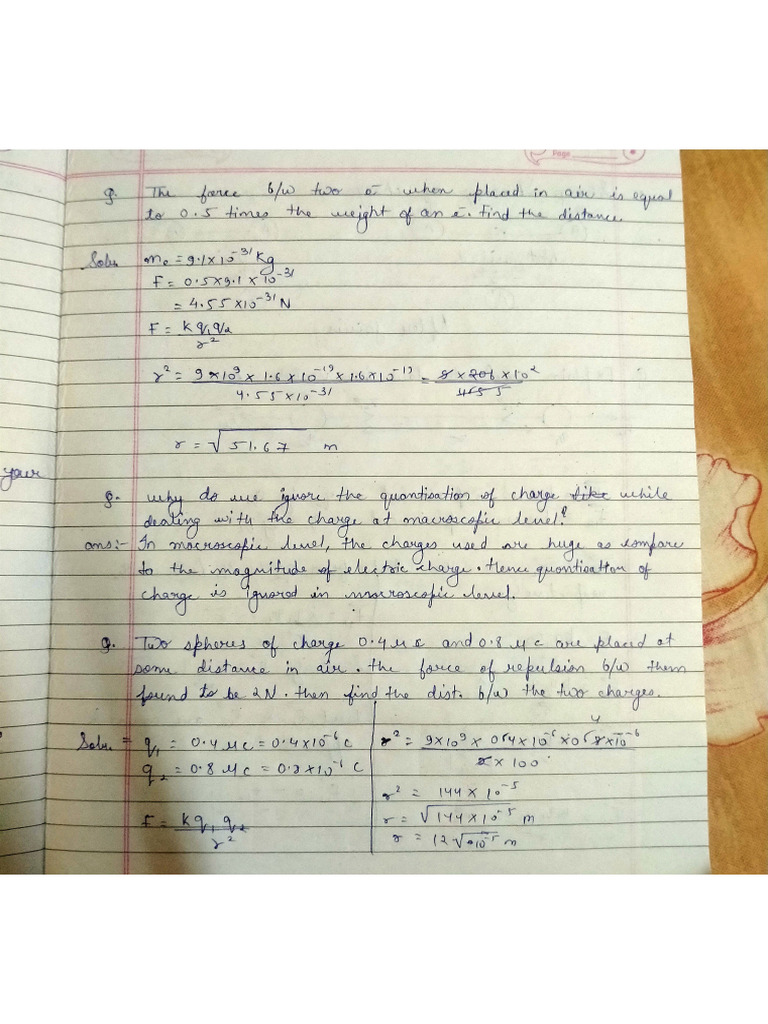 Page
Q. The force b/w two ē when placed in air is equal
to 0.5 times the weight of an ē. Find the distance.
Soln. me = 9.1×10⁻³¹ Kg
F = 0.5×9.1×10⁻³¹
= 4.55×10⁻³¹ N
F = K q₁q₂ / r²
r² = 9×10⁹ × 1.6×10⁻¹⁹ × 1.6×10⁻¹⁹ / 4.55×10⁻³¹ =
r = √51.67 m
your
Q. Why do we ignore the quantisation of charge like while
dealing with the charge at macroscopic level?
ans:- In macroscopic level, the charges used are huge as compare
to the magnitude of electric charge. Hence quantisation of
charge is ignored in macroscopic level.
Q. Two spheres of charge 0.4 μc and 0.8 μc are placed at
some distance in air. the force of repulsion b/w them
found to be 2N. then find the dist. b/w the two charges.
Soln. = q₁ = 0.4 μc = 0.4×10⁻⁶ C
q₂ = 0.8 μc = 0.8×10⁻⁶ C
F = K q₁ q₂ / r²
4
r² = 9×10⁹ × 04×10⁻⁶ × 08×10⁻⁶ / 2×100
r² = 144×10⁻⁵
r = √144×10⁻⁵ m
r = 12√10⁻⁵ m